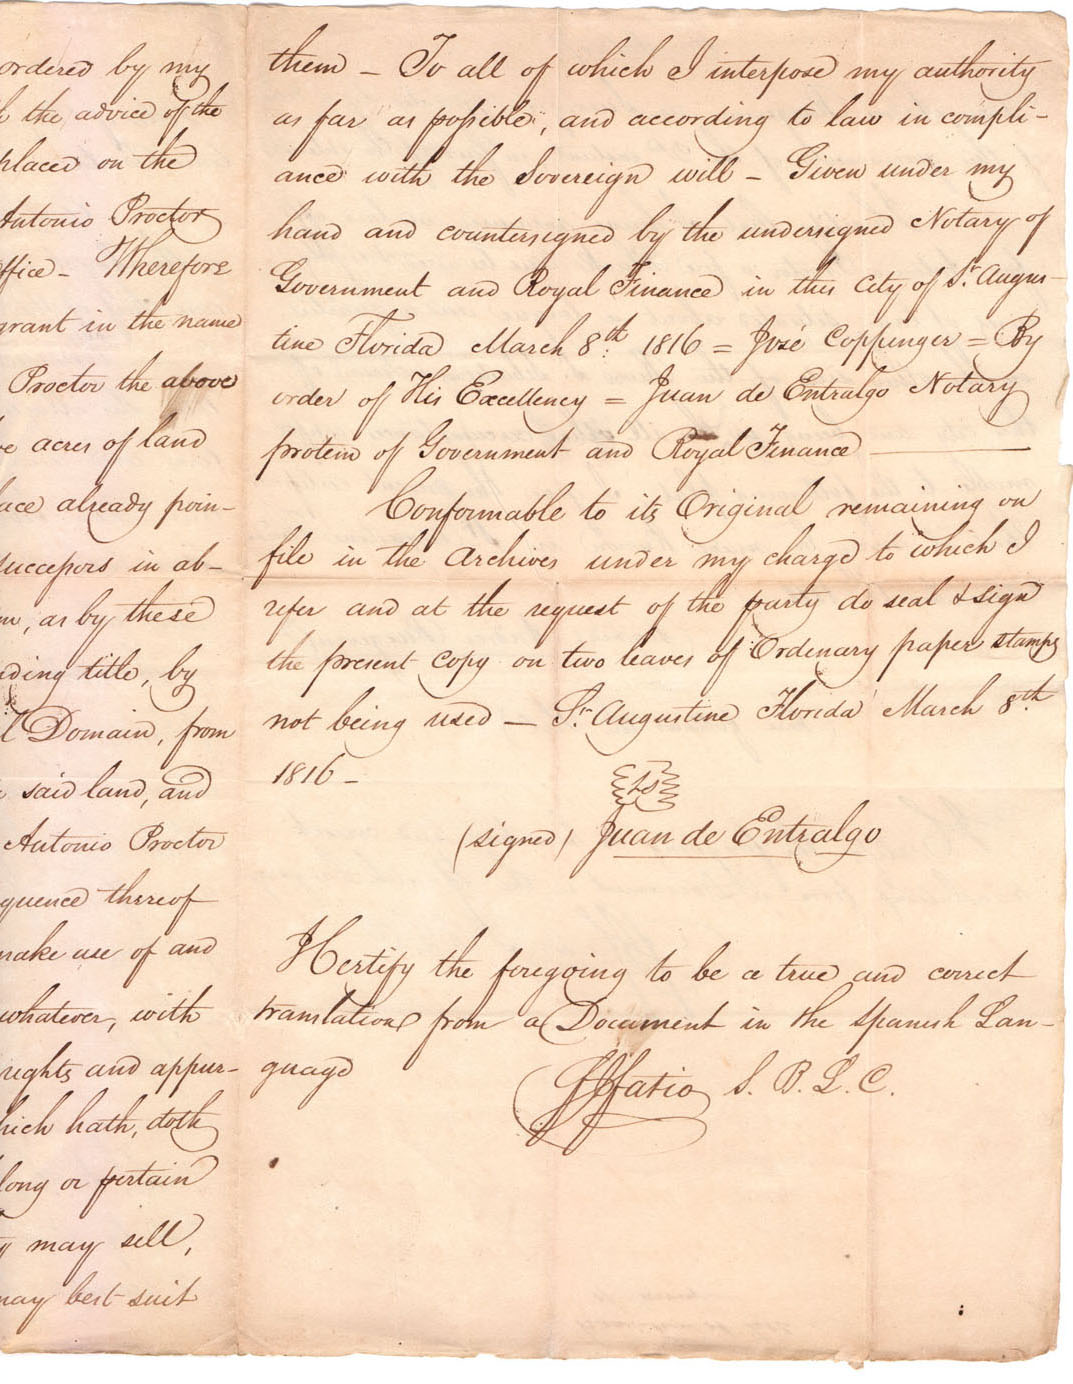 ordered by my
the advice of the
placed on the
Antonio Proctor
office - Wherefore
grant in the name
Proctor the above
acres of land
already poin-
successors in ab-
as by these
title, by
Domain, from
said land, and
Antonio Proctor
thereof
make use of and
whatever, with
rights and appur-
hath, doth
or pertain
may sell,
may best suit
them - To all of which I interpose my authority
as far as possible, and according to law in compli-
ance with the Sovereign will - Given under my
hand and countersigned by the undersigned Notary of
Government and Royal Finance in this City of St. Augus-
tine Florida March 8th. 1816 = José Coppinger = By
order of His Excellency = Juan de Entralgo Notary
protem of Government and Royal Finance
Conformable to its Original remaining on
file in the Archives under my charge to which I
refer and at the request of the party do seal & sign
the present Copy on two leaves of Ordenary paper stamps
not being used - St. Augustine Florida March 8th.
1816 -
LS
(signed) Juan de Entralgo
I Certify the foregoing to be a true and correct
translation from a Document in the Spanish Lan-
guage
FJFatio S. B. L. C.